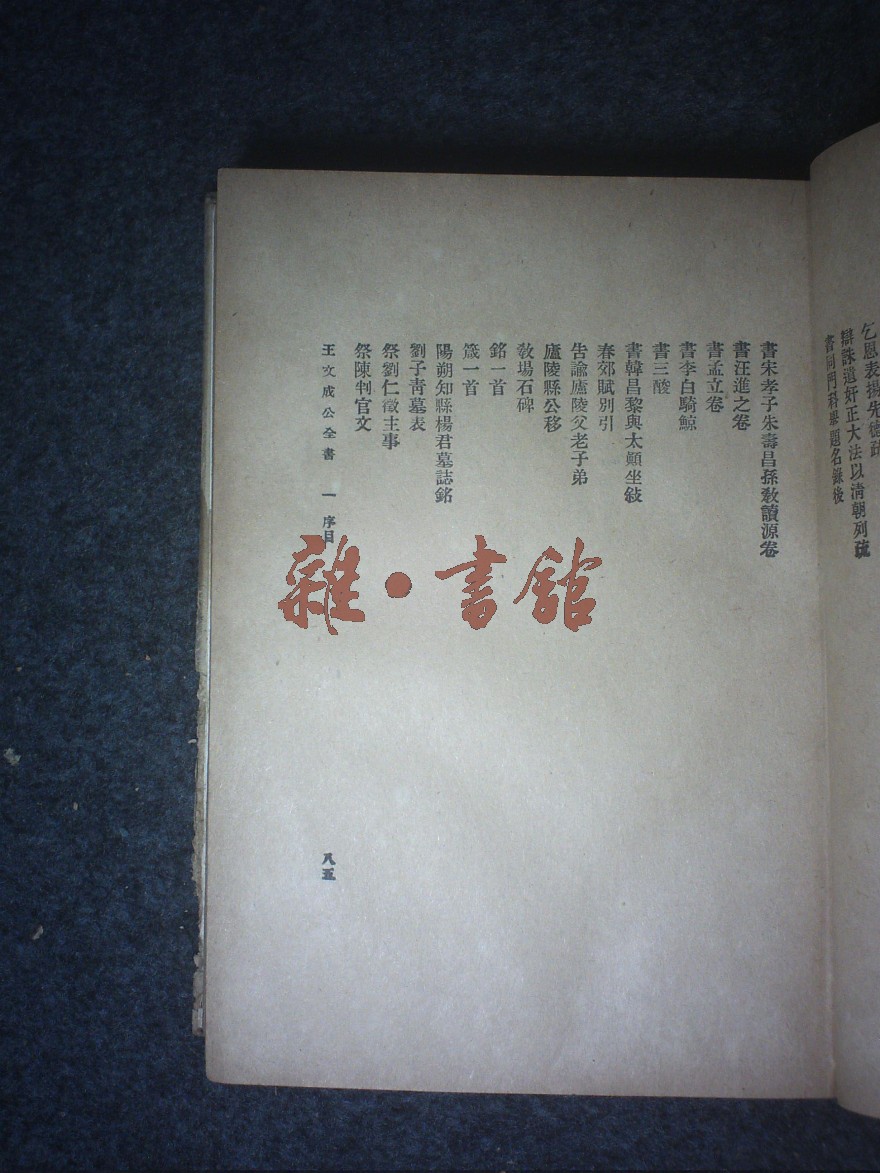 乞恩表揚先德疏
辯誅遺奸正大法以清朝列疏
書同門科舉題名錄後
書宋孝子朱壽昌孫敎讀源卷
書汪進之卷
書孟立卷
書李白騎鯨
書三酸
書韓昌黎與太顚坐敍
春郊賦別引
告諭廬陵父老子弟
廬陵縣公移
敎場石碑
銘一首
箴一首
陽朔知縣楊君墓誌銘
劉子靑墓表
祭劉仁徵主事
祭陳判官文
王文成公全書 一 序目
八五
雜·書館